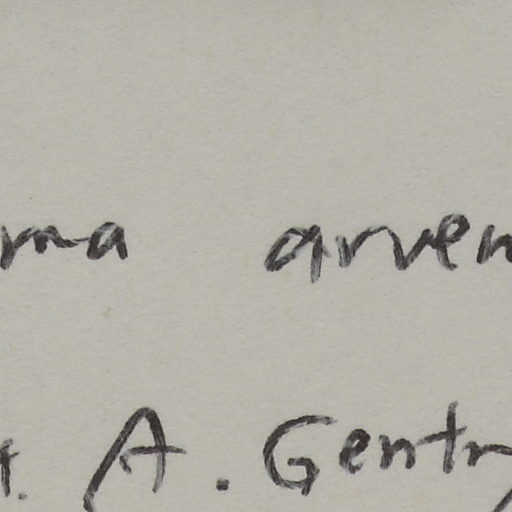 ma arven
t. A. Gentry